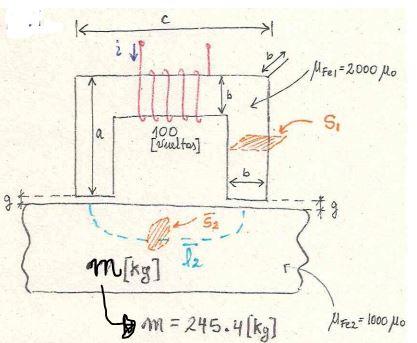 c
i
b
μFe1=2000 μo
b
a
100
[vueltas]
S1
b
g
g
S2
l2
m[kg]
r
m = 245.4[kg]
μFe2=1000 μo